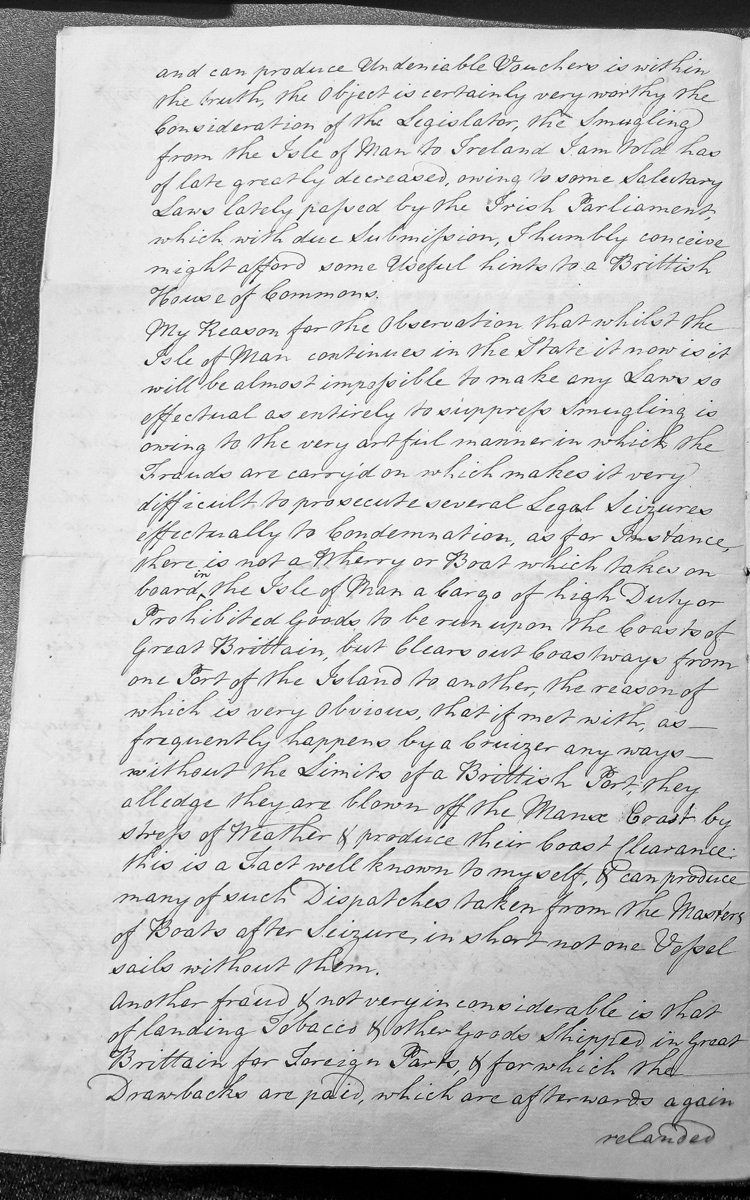 and can produce Undeniable Vouchers is within
the truth, the Object is certainly very worthy the
Consideration of the Legislator, the Smugling
from the Isle of Man to Ireland I am told has
of late greatly decreased, owing to some Salutary
Laws lately passed by the Irish Parliament,
which, with due Submission, I humbly conceive
might afford some Useful hints to a Brittish
House of Commons.
My Reason for the Observation that whilst the
Isle of Man continues in the State it now is it
will be almost impossible to make any Laws so
effectual as entirely to suppress Smugling is
owing to the very artful manner in which the
Frauds are carry'd on which makes it very
difficult to prosecute several Legal Seizures
effectually to Condemnation, as for Instance,
there is not a Wherry or Boat which takes on
board in the Isle of Man a Cargo of high Duty or
Prohibited Goods to be run upon the Coasts of
Great Brittain, but Clears out Coastways from
one Port of the Island to another, the reason of
which is very Obvious, that if met with, as
frequently happens by a Cruizer any ways
without the Limits of a Brittish Port, they
alledge they are blown off the Manx Coast by
stress of Weather & produce their Coast Clearance:
this is a Fact well known to myself, & can produce
many of such Dispatches taken from the Masters
of Boats after Seizure, in short not one Vessel
sails without them.
Another fraud & not very inconsiderable is that
of landing Tobacco & other Goods Shipped in Great
Brittain for Foreign Parts, & for which the
Drawbacks are paid, which are afterwards again
relanded